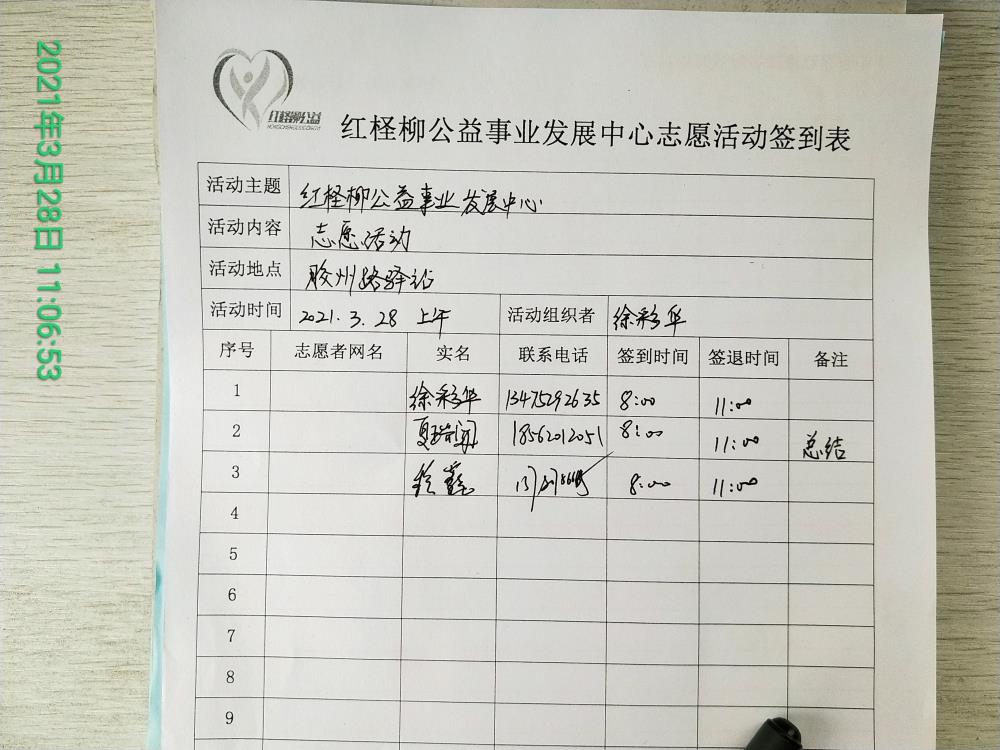 2021年3月28日 11:06:53
红柽柳公益
红柽柳公益事业发展中心志愿活动签到表
活动主题 红柽柳公益事业发展中心
活动内容 志愿活动
活动地点 胶州路驿站
活动时间 2021.3.28 上午 活动组织者 徐彩华
序号 志愿者网名 实名 联系电话 签到时间 签退时间 备注
1 徐彩华 13475292635 8:00 11:00
2 18562012051 8:00 11:00 总结
3 8:00 11:00
4
5
6
7
8
9